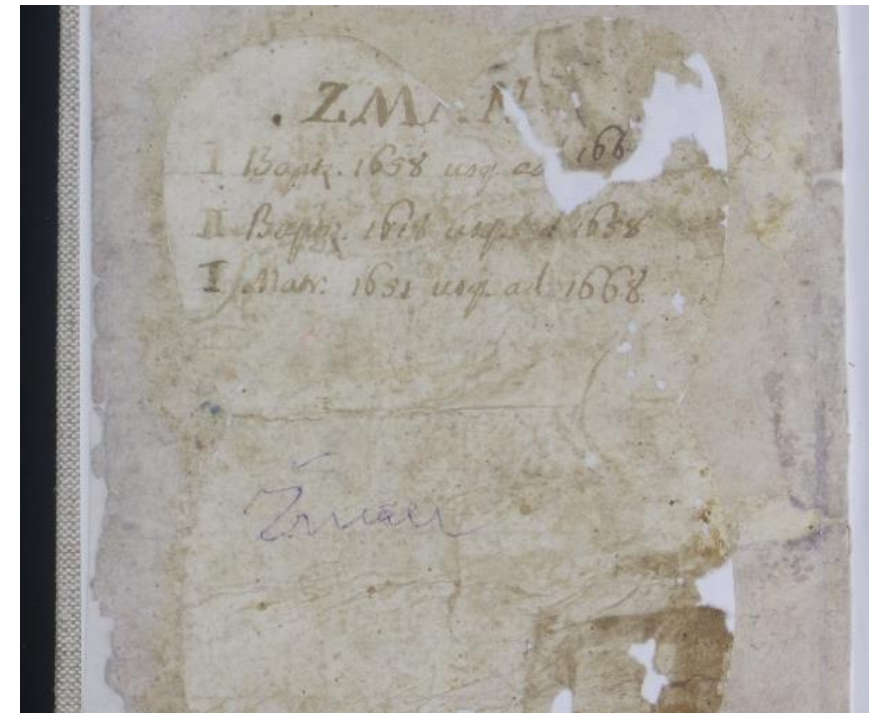 . ZMAN
I Bapt. 1658 usq. ad 166
II Baptz. 1618 usq. ad 1658
I Matr. 1651 usq. ad 1668
Žman